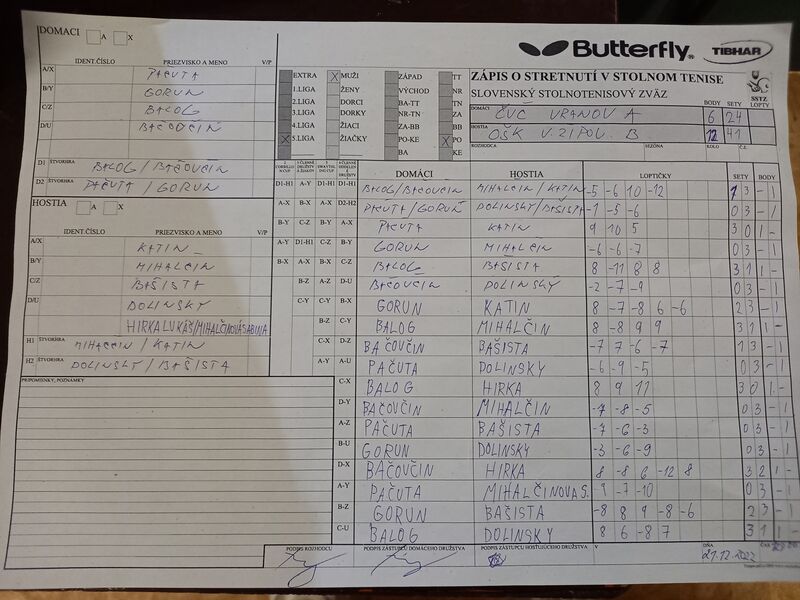 DOMACI A X
IDENT.ČÍSLO PRIEZVISKO A MENO V/P
A/X PAČUTA
B/Y GORUN
C/Z BALOG
D/U BAČOVČIN
D1 ŠTVORHRA BALOG / BAČOVČIN
D2 ŠTVORHRA PAČUTA / GORUN
HOSTIA A X
IDENT.ČÍSLO PRIEZVISKO A MENO V/P
A/X KATIN
B/Y MIHALČIN
C/Z BAŠISTA
D/U DOLINSKÝ
HIRKA LUKÁŠ/MIHALČINOVÁ SABINA
H1 ŠTVORHRA MIHALČIN / KATIN
H2 ŠTVORHRA DOLINSKÝ / BAŠISTA
PRIPOMIENKY, POZNÁMKY
Butterfly TIBHAR
EXTRA X MUŽI ZÁPAD TT
1.LIGA ŽENY VÝCHOD NR
2.LIGA DORCI BA-TT TN
3.LIGA DORKY NR-TN ZA
4.LIGA ŽIACI ZA-BB BB
X 5.LIGA ŽIAČKY PO-KE X PO
BA KE
ZÁPIS O STRETNUTÍ V STOLNOM TENISE
SLOVENSKÝ STOLNOTENISOVÝ ZVÄZ
SSTZ LOPTY
DOMÁCI ČVČ VRANOV A BODY 6 SETY 24
HOSTIA OŠK V. ZIPOV. B 12 41
ROZHODCA SEZÓNA KOLO Č.Z.
DOMÁCI HOSTIA LOPTIČKY SETY BODY
D1-H1 A-Y D1-H1 D1-H1 BALOG/BAČOVČIN MIHALČIN / KATIN -5 -6 10 -12 1 3 - 1
A-X B-X A-X D2-H2 PAČUTA/GORUŇ DOLINSKÝ/BAŠISTA -1 -5 -6 0 3 - 1
B-Y C-Z B-Y A-X PAČUTA KATIN 9 10 5 3 0 1 -
A-Y D1-H1 C-Z B-Y GORUN MIHALČIN -6 -6 -7 0 3 - 1
B-X A-X A-Y C-Z BALOG BAŠISTA 8 -11 8 8 3 1 1 -
B-Z A-Z D-U BAČOVČIN DOLINSKÝ -2 -7 -9 0 3 - 1
C-Y C-Y B-X GORUN KATIN 8 -7 -8 6 -6 2 3 - 1
B-Z C-Y BALOG MIHALČIN 8 -8 9 9 3 1 1 -
C-X D-Z BAČOVČIN BAŠISTA -7 7 -6 -7 1 3 - 1
A-Y A-U PAČUTA DOLINSKÝ -6 -9 -5 0 3 - 1
C-X BALOG HIRKA 8 9 11 3 0 1 -
D-Y BAČOVČIN MIHALČIN -7 -8 -5 0 3 - 1
A-Z PAČUTA BAŠISTA -7 -6 -3 0 3 - 1
B-U GORUN DOLINSKÝ -3 -6 -9 0 3 - 1
D-X BAČOVČIN HIRKA 8 -8 6 -12 8 3 2 1 -
A-Y PAČUTA MIHALČINOVA S. 9 -7 -10 0 3 - 1
B-Z GORUN BAŠISTA -8 8 9 -8 -6 2 3 - 1
C-U BALOG DOLINSKÝ 8 6 -8 7 3 1 1 -
PODPIS ROZHODCU PODPIS ZÁSTUPCU DOMÁCEHO DRUŽSTVA PODPIS ZÁSTUPCU HOSŤUJÚCEHO DRUŽSTVA V DŇA 21.12.2022 ČAS